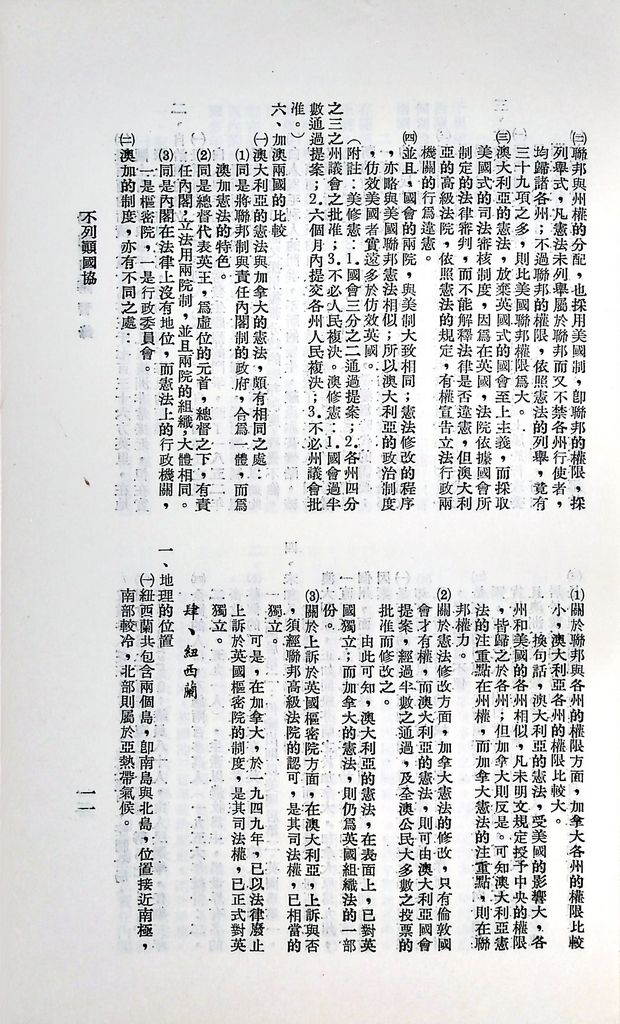 ㈡聯邦與州權的分配，也採用美國制，卽聯邦的權限，採
列舉式，凡憲法未列舉屬於聯邦而又不禁各州行使者，
均歸諸各州；不過聯邦的權限，依照憲法的列舉，竟有
三十九項之多，則比美國聯邦權限爲大。
㈢澳大利亞的憲法，放棄英國式的國會至上主義，而採取
美國式的司法審核制度，因爲在英國，法院依據國會所
制定的法律審判，而不能解釋法律是否違憲，但澳大利
亞的高級法院，依照憲法的規定，有權宣告立法行政兩
機關的行爲違憲。
㈣並且，國會的兩院，與美制大致相同；憲法修改的程序
，亦略與美國聯邦憲法相似；所以澳大利亞的政治制度
，仿效美國者實遠多於仿效英國。
（附註：美修憲：1.國會三分之二通過提案；2.各州四分
之三之州議會之批准；3.不必人民複決。澳修憲：1.國會過半
數通過提案；2.六個月內提交各州人民複決；3.不必州議會批
准。）
六、加澳兩國的比較
㈠澳大利亞的憲法與加拿大的憲法，頗有相同之處：
⑴同是將聯邦制與責任內閣制的政府，合爲一體，而爲
澳加憲法的特色。
⑵同是總督代表英王，爲虛位的元首，總督之下，有責
任內閣，立法用兩院制，並且兩院的組織，大體相同。
⑶同是內閣在法律上沒有地位，而憲法上的行政機關，
一是樞密院，一是行政委員會。
㈡澳加的制度，亦有不同之處：
不列顚國協
⑴關於聯邦與各州的權限方面，加拿大各州的權限比較
小，澳大利亞各州的權限比較大。
換句話，澳大利亞的憲法，受美國的影響大，各
州和美國的各州相似，凡未明文規定授予中央的權限
，皆歸之於各州；但加拿大則反是。可知澳大利亞憲
法的注重點在州權，而加拿大憲法的注重點，則在聯
邦權力。
⑵關於憲法修改方面，加拿大憲法的修改，只有倫敦國
會才有權，而澳大利亞的憲法，則可由澳大利亞國會
提案，經過半數之通過，及全澳公民大多數之投票的
批准而修改之。
由此可知，澳大利亞的憲法，在表面上，已對英
國獨立；而加拿大的憲法，則仍爲英國組織法的一部
份。
⑶關於上訴於英國樞密院方面，在澳大利亞，上訴與否
，須經聯邦高級法院的認可，是其司法權，已相當的
獨立。
可是，在加拿大，於一九四九年，已以法律廢止
上訴於英國樞密院的制度，是其司法權，已正式對英
獨立。
肆、紐西蘭
一、地理的位置
㈠紐西蘭共包含兩個島，卽南島與北島，位置接近南極，
南部較冷，北部則屬於亞熱帶氣候。
一一